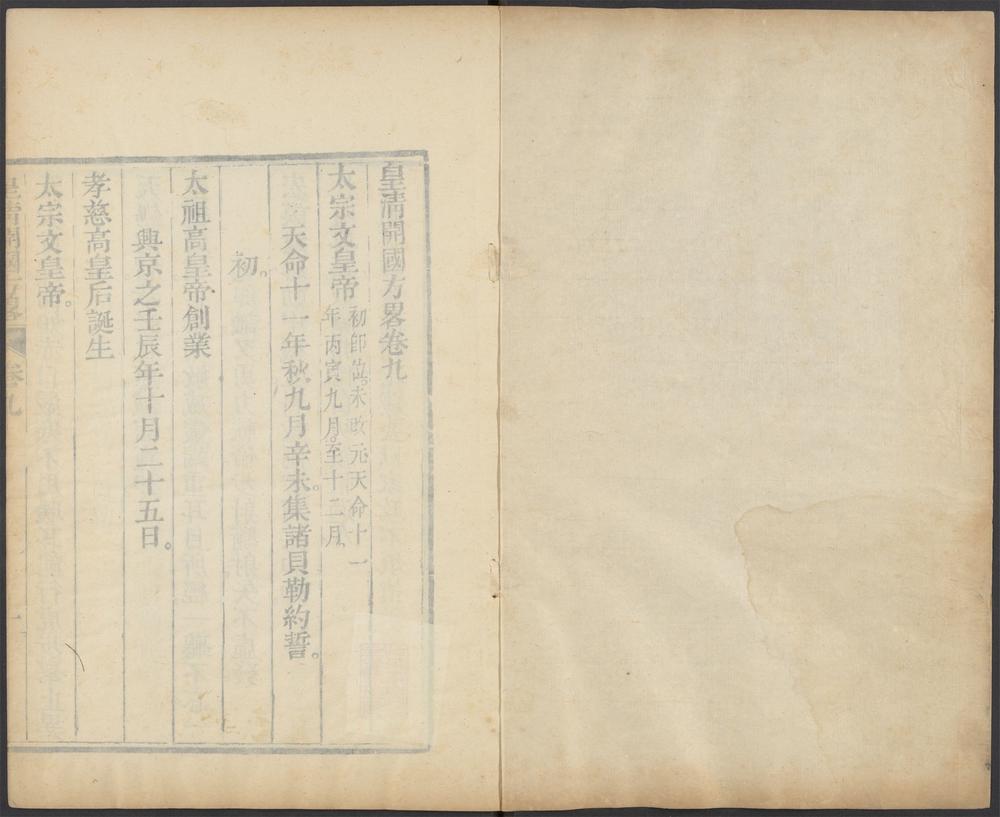 皇清開國方畧卷九
太宗文皇帝初即位。未改元天命十一
年丙寅九月。至十二月、
天命十一年秋九月辛未。集諸貝勒約誓。
初。
太祖高皇帝創業
興京之壬辰年十月二十五日。
孝慈高皇后誕生
太宗文皇帝。
皇清開國方畧 卷九 一